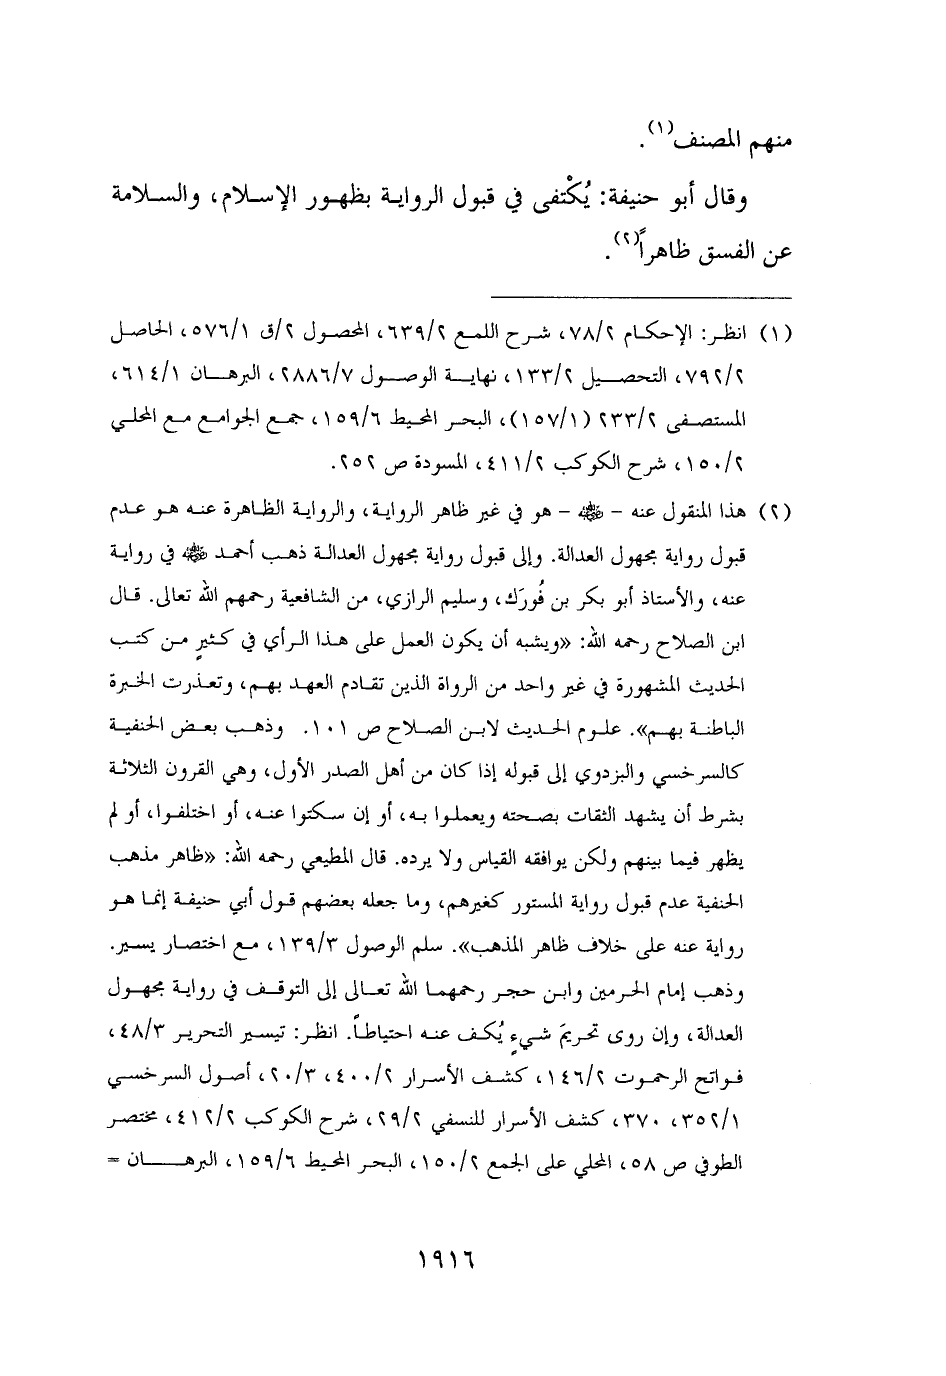 منهم المصنف(١).
وقال أبو حنيفة: يُكْتفى في قبول الرواية بظهور الإسلام، والسلامة
عن الفسق ظاهراً(٢).
(١) انظر: الإحكام ٧٨/٢، شرح اللمع ٦٣٩/٢، المحصول ٢/ق ٥٧٦/١، الحاصل
٧٩٢/٢، التحصيل ١٣٣/٢، نهاية الوصول ٢٨٨٦/٧، البرهان ٦١٤/١،
المستصفى ٢٣٣/٢ (١٥٧/١)، البحر المحيط ١٥٩/٦، جمع الجوامع مع المحلي
١٥٠/٢، شرح الكوكب ٤١١/٢، المسودة ص ٢٥٢.
(٢) هذا المنقول عنه - ﵁ - هو في غير ظاهر الرواية، والرواية الظاهرة عنه هو عدم
قبول رواية مجهول العدالة. وإلى قبول رواية مجهول العدالة ذهب أحمد ﵁ في رواية
عنه، والأستاذ أبو بكر بن فُورَك، وسليم الرازي، من الشافعية رحمهم الله تعالى. قال
ابن الصلاح رحمه الله: «ويشبه أن يكون العمل على هذا الرأي في كثيرٍ من كتب
الحديث المشهورة في غير واحد من الرواة الذين تقادم العهد بهم، وتعذرت الخبرة
الباطنة بهم». علوم الحديث لابن الصلاح ص ١٠١. وذهب بعض الحنفية
كالسرخسي والبزدوي إلى قبوله إذا كان من أهل الصدر الأول، وهي القرون الثلاثة
بشرط أن يشهد الثقات بصحته ويعملوا به، أو إن سكتوا عنه، أو اختلفوا، أو لم
يظهر فيما بينهم ولكن يوافقه القياس ولا يرده. قال المطيعي رحمه الله: «ظاهر مذهب
الحنفية عدم قبول رواية المستور كغيرهم، وما جعله بعضهم قول أبي حنيفة إنما هو
رواية عنه على خلاف ظاهر المذهب». سلم الوصول ١٣٩/٣، مع اختصار يسير.
وذهب إمام الحرمين وابن حجر رحمهما الله تعالى إلى التوقف في رواية مجهول
العدالة، وإن روى تحريمَ شيءٍ يُكف عنه احتياطاً. انظر: تيسير التحرير ٤٨/٣،
فواتح الرحموت ١٤٦/٢، كشف الأسرار ٤٠٠/٢، ٢٠/٣، أصول السرخسي
٣٥٢/١، ٣٧٠، كشف الأسرار للنسفي ٢٩/٢، شرح الكوكب ٤١٢/٢، مختصر
الطوفي ص ٥٨، المحلي على الجمع ١٥٠/٢، البحر المحيط ١٥٩/٦، البرهان =
١٩١٦